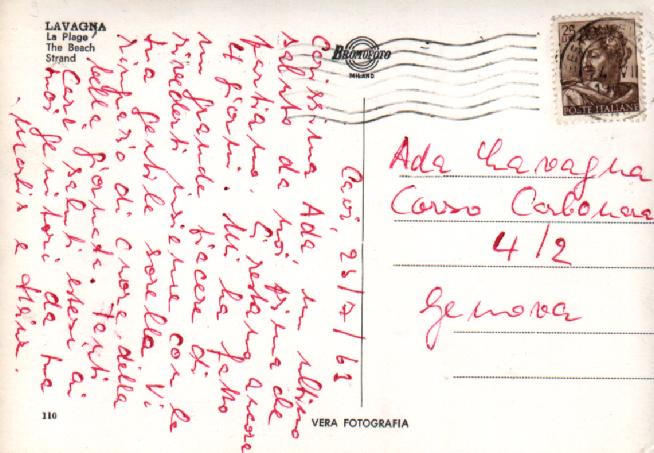 LAVAGNA
La Plage
The Beach
Strand
BROMOFOTO
MILANO
POSTE ITALIANE
Cavi 23/7/62
Carissima Ada un ultimo
saluto da noi prima che
partiamo. Ci restano ancora
giorni. Mi ha fatto
un grande piacere di
rivederti insieme con la
tua gentile sorella. Vi
ringrazio di cuore della
bella giornata. Tanti
Cari saluti estesi ai
tuoi genitori da tua
Maria e
Ada Lavagna
Corso Carbonara
4/2
Genova
110
VERA FOTOGRAFIA